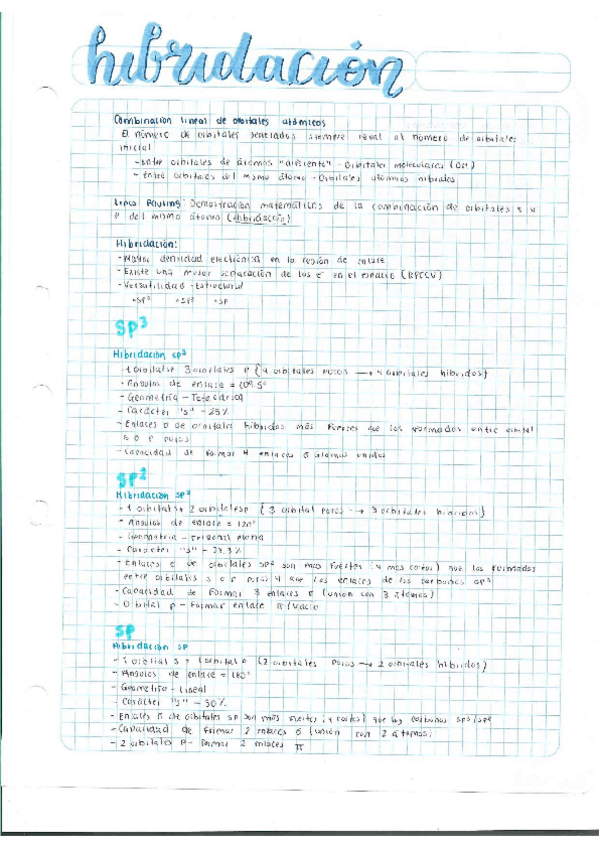 hibridación
Combinación lineal de orbitales atómicos
El número de orbitales generados siempre igual al número de orbitales
inicial
- Entre orbitales de átomos "diferente" - Orbitales moleculares (OM)
- Entre orbitales del mismo átomo - Orbitales atómicos híbridos
Linus Pauling: Demostración matemáticas de la combinación de orbitales s y
p del mismo átomo (hibridación)
Hibridación:
- Mayor densidad electrónica en la región de enlace
- Existe una mejor separación de los e⁻ en el espacio (RPECV)
- Versatilidad - Estructural
• sp³ • sp² • sp
sp³
Hibridación sp³
- 1 orbital s + 3 orbitales p {4 orbitales puros → 4 orbitales híbridos}
- Ángulos de enlace = 109.5°
- Geometría - Tetraédrica
- Carácter "s" - 25%
- Enlaces σ de orbitales híbridos más fuertes que los formados entre orbital
s o p puros
- Capacidad de formar 4 enlaces σ átomos unidos
sp²
Hibridación sp²
- 1 orbital s + 2 orbitales p {3 orbital puros → 3 orbitales híbridos}
- Ángulos de enlace = 120°
- Geometría - trigonal plana
- Carácter "s" - 33.3%
- Enlaces σ de orbitales sp² son más fuertes (y más cortos) que los formados
entre orbitales s o p puros y que los enlaces de los carbonos sp³
- Capacidad de formar 3 enlaces σ (unión con 3 átomos)
- Orbital p - Formar enlace π/vacío
sp
Hibridación sp
- 1 orbital s + 1 orbital p (2 orbitales puros → 2 orbitales híbridos)
- Ángulos de enlace = 180°
- Geometría - Lineal
- Carácter "s" - 50%
- Enlaces σ de orbitales sp son más fuertes (y cortos) que los carbonos sp³/sp²
- Capacidad de formar 2 enlaces σ (unión con 2 átomos)
- 2 orbitales p - formar 2 enlaces π